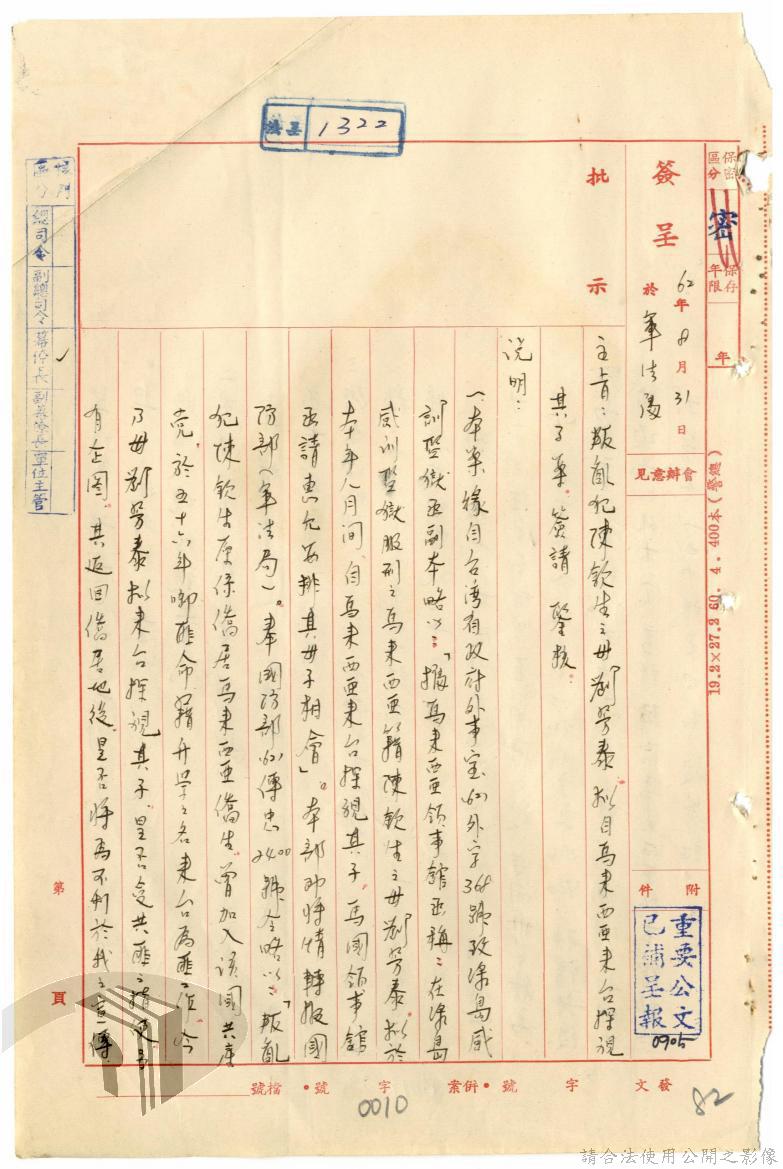 保密區分
密
保存年限
年
19.2×27.2 60. 4. 400本(警總)
簽呈
62年8月31日
於軍法處
會辦意見
附件
重要公文
已補呈報
0905
批示
1322
主旨：叛亂犯陳欽生之母劉芳泰擬自馬來西亞來台探視
其子案。簽請鑒核
說明：
一、本案緣自台灣省政府外事室(62)外字368號致綠島感
訓監獄函副本略以：「據馬來西亞領事館函稱：在綠島
感訓監獄服刑之馬來西亞籍陳欽生之母劉芳泰擬於
本年八月間，自馬來西亞來台探視其子，馬國領事館
函請惠允安排其母子相會」。本部乃將情轉報國
防部(軍法局)。奉國防部(62)傳忠2400號令略以：「叛亂
犯陳欽生原係僑居馬來西亞僑生，曾加入該國共產
黨。於五十六年啣匪命藉升學之名來台為匪 今
乃母劉芳泰擬來台探視其子，是否受共匪之指使
有企圖。其返回僑居地後，是否將為不利於我之宣傳
總司令
副總司令
參謀長
單位主管
第 頁
發文 字 號・併案 字 號・檔號
0010
82
請合法使用公開之影像